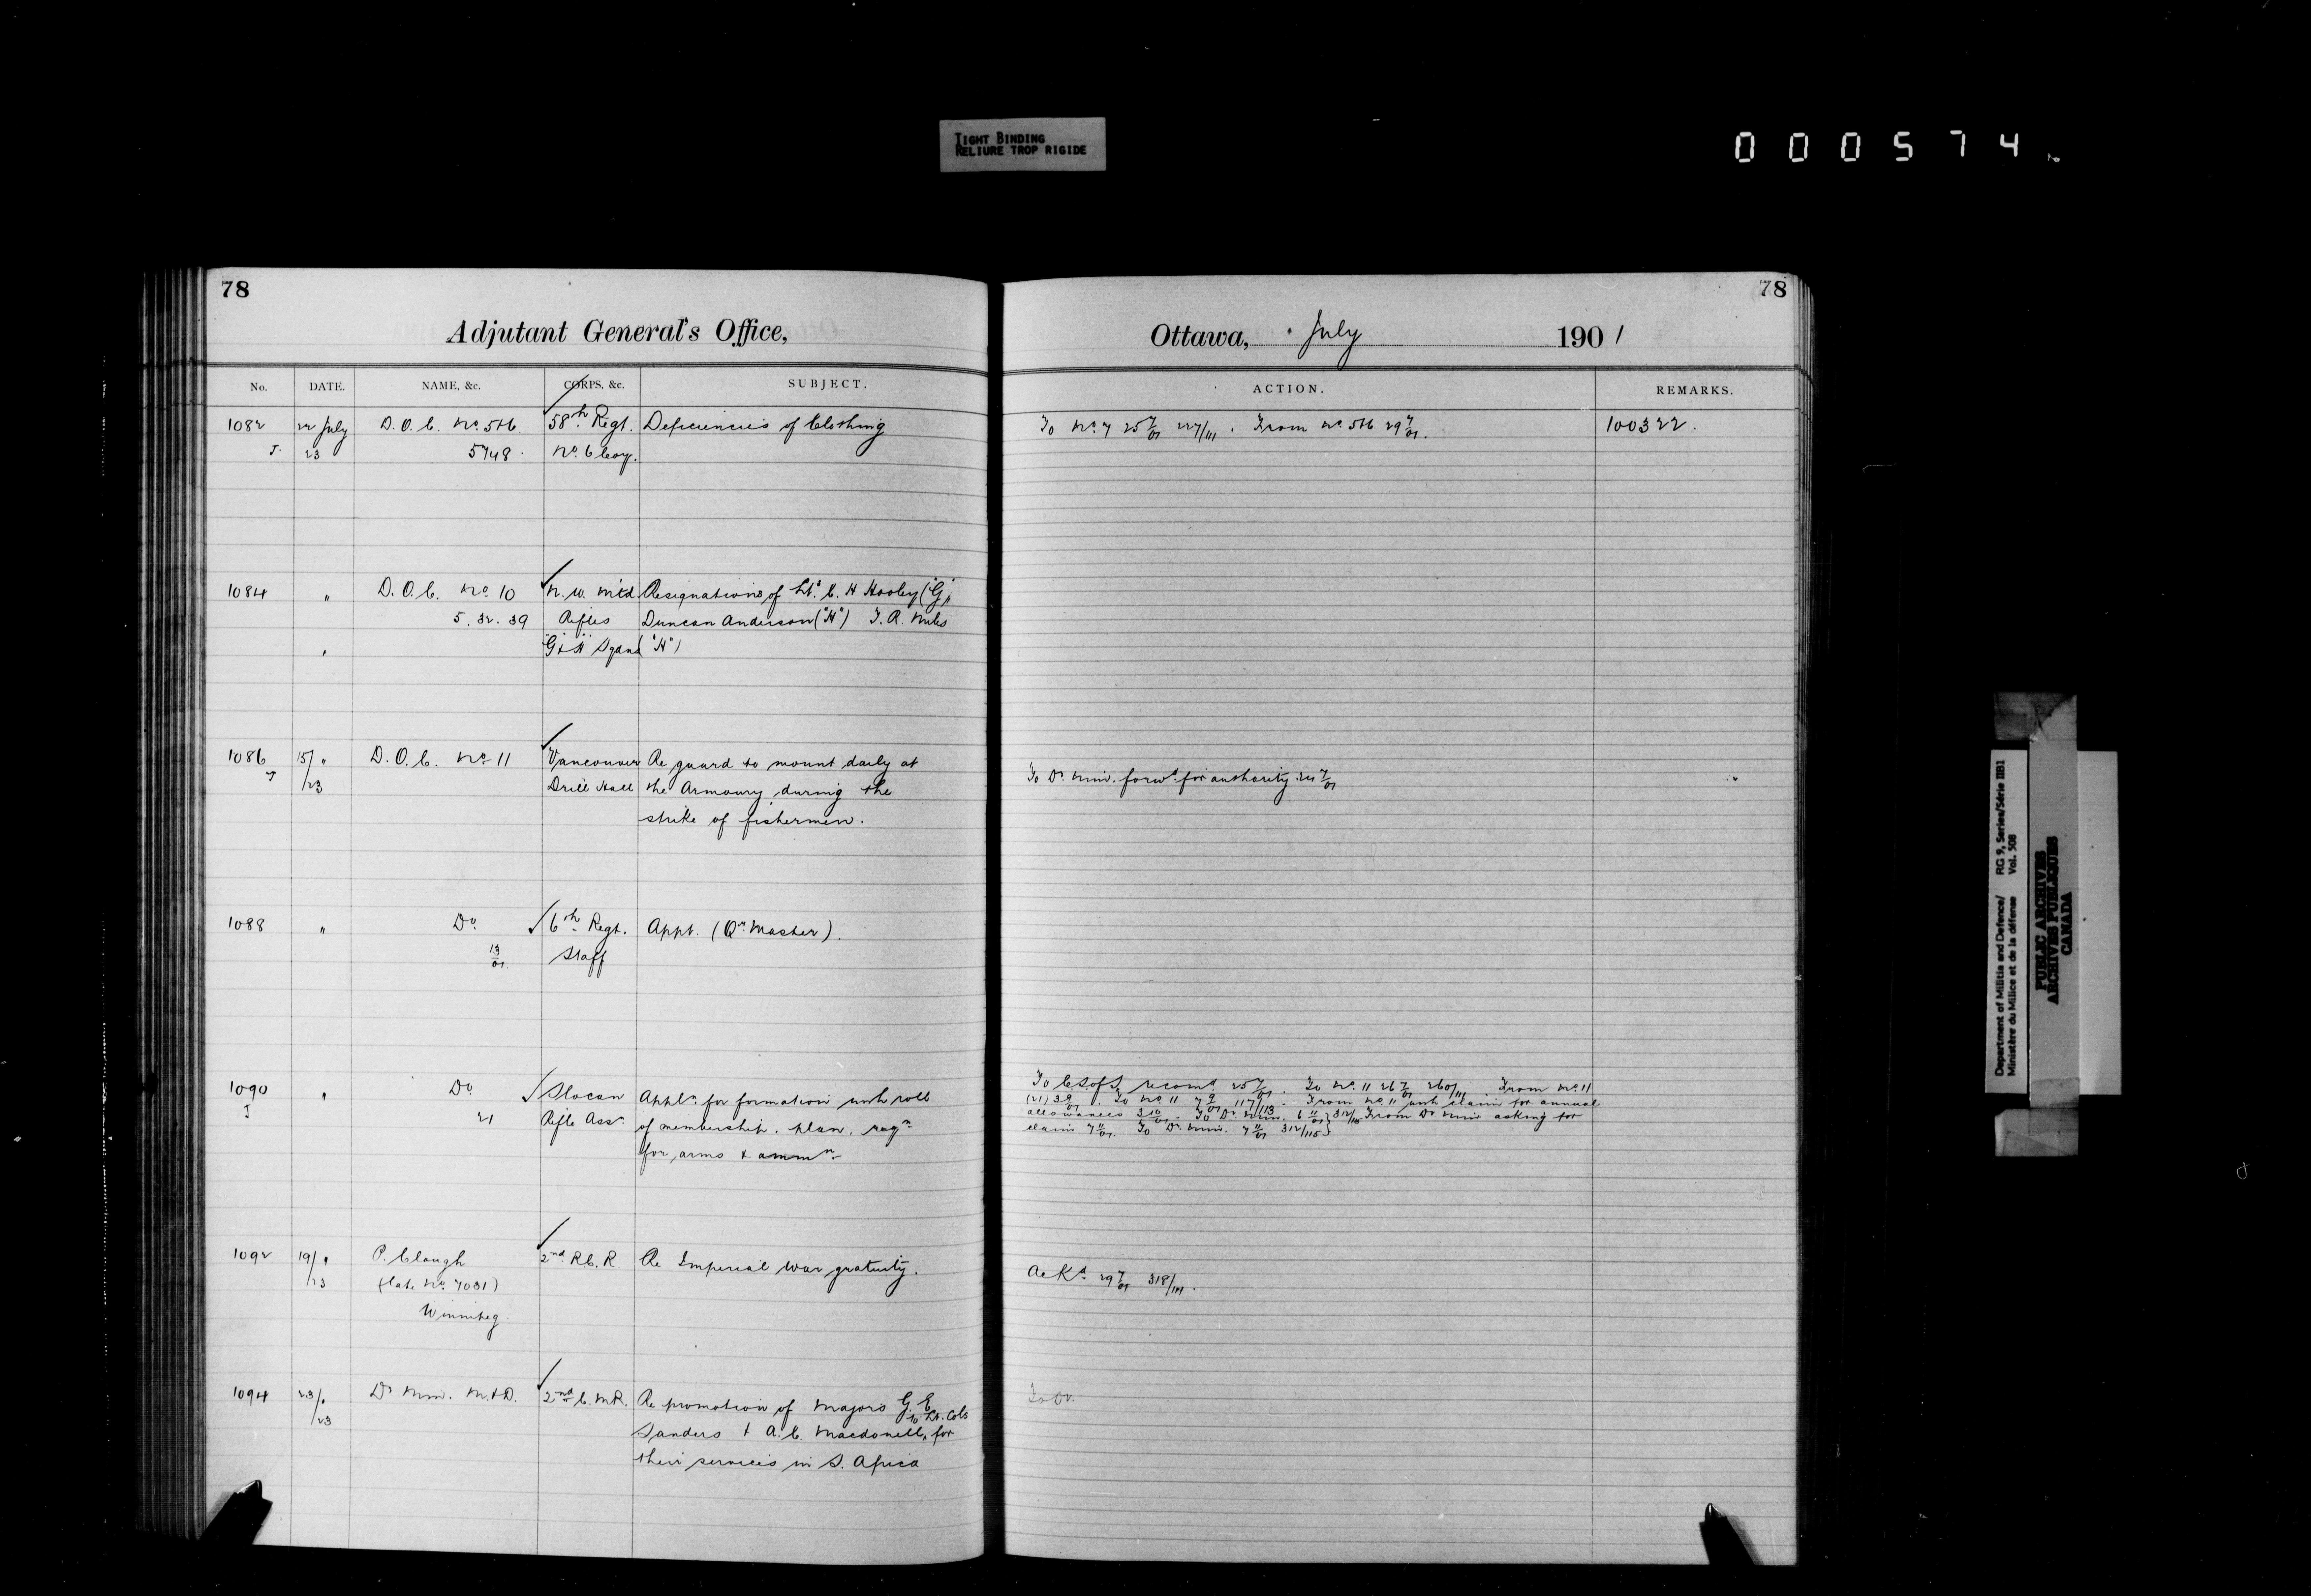 TIGHT BINDING
RELIURE TROP RIGIDE
000574
78
Adjutant General's Office,
No. DATE. NAME, &c. CORPS, &c. SUBJECT.
1082 22 July D.O.C. No. 5+6 58th Regt. Deficiencies of Clothing
J. 23 5748. No. 6 Coy.
1084 " D.O.C. No. 10 N.W. Mtd Resignations of Lt. C. H Hooley ("G")
5.32.39 Rifles Duncan Anderson ("H") T. R. Miles
" "G" + "H" Sqans ("H")
1086 15/ " D.O.C. No. 11 Vancouver Re guard to mount daily at
J /23 Drill Hall the Armoury during the
strike of fishermen.
1088 " Do. 6th Regt. Appt. (Qr. Master).
13/01. Staff
1090 " Do Slocan Appln. for formation with roll
J 21 Rifle Assn. of membership, plan, reqn.
for arms + ammn.
1092 19/ " P. Clough 2nd R.C.R Re Imperial War gratuity.
/23 (late No. 7031)
Winnipeg
1094 23/ " Dr Min. M.+D. 2nd C.M.R. Re promotion of Majors G. E
/23 to Lt. Cols
Sanders + A.C. Macdonell, for
their services in S. Africa
78
Ottawa, July 1901
ACTION. REMARKS.
To No. 7 25 7/01 227/111. From No. 5+6 29 7/01. 100322.
To Dr. Min. forwd. for authority 24 7/01
To C.S. of S. recomd. 25 7/01. To No. 11 26 7/01 260/111 From No. 11
(21) 3 9/01. To No. 11 7 9/01 117/113. From No. 11 with claim for annual
allowances 3 10/01. To Dr. Min. 6 11/01 } 312/115 From Dr. Min asking for
claim 7 11/01. To Dr. Min. 7 11/01 312/115 }
Ackd. 29 7/01 318/111.
Department of Militia and Defence/ RG 9, Series/Série IIB1
Ministère du Milice et de la défense Vol. 508
PUBLIC ARCHIVES
ARCHIVES PUBLIQUES
CANADA